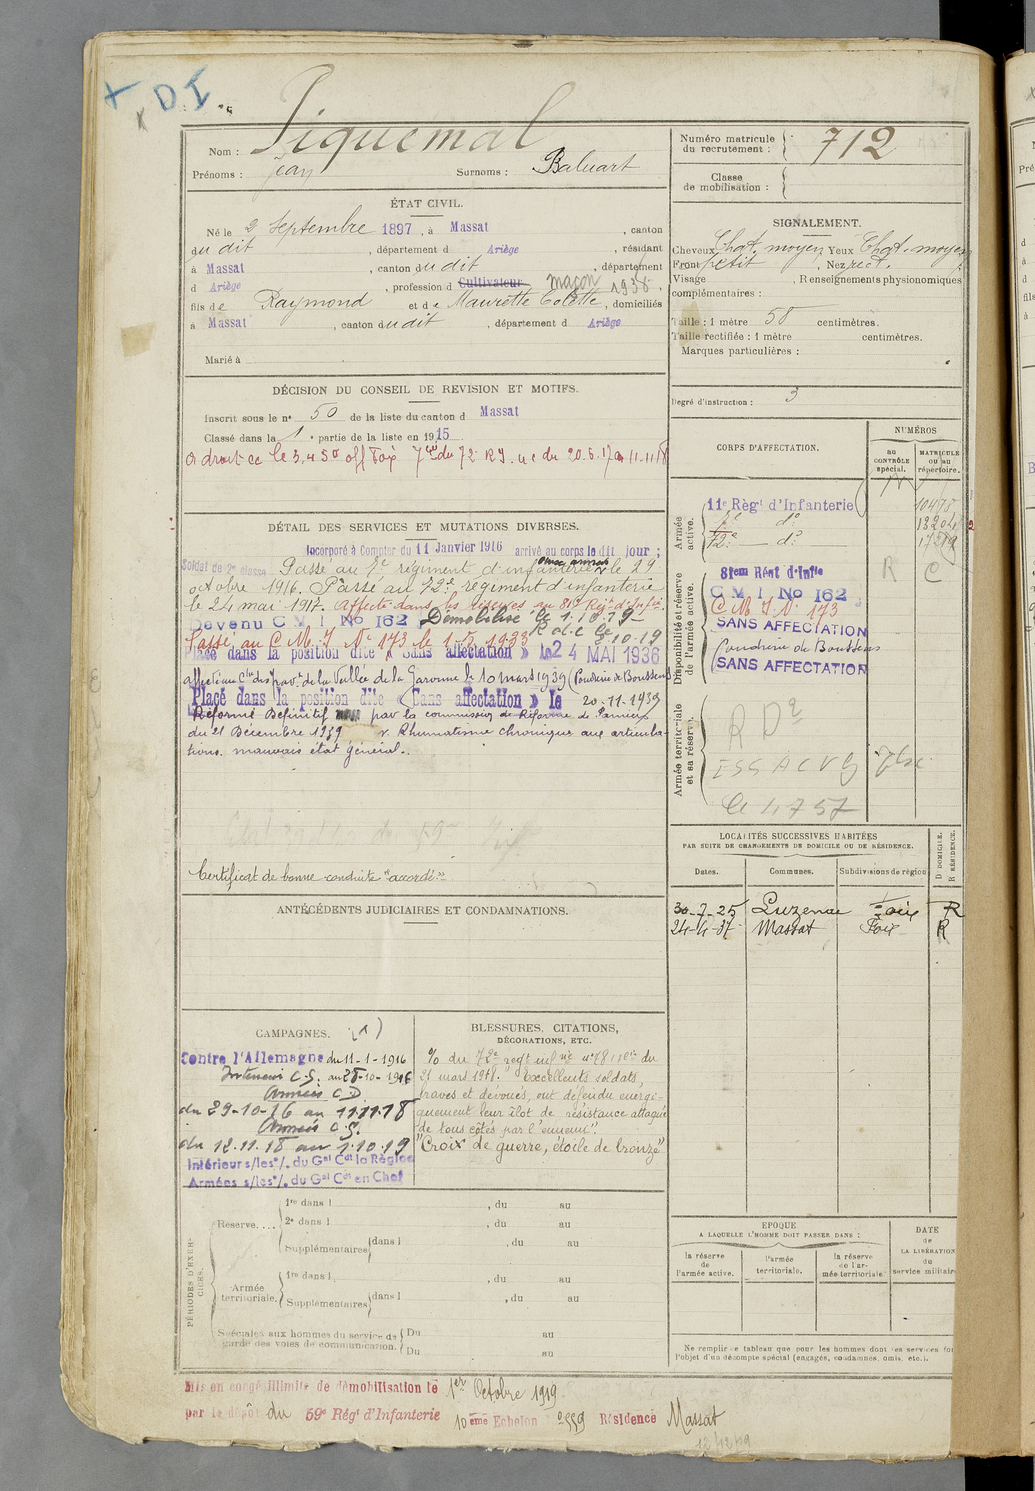 D I
Nom : Piquemal
Prénoms : Jean Surnoms : Baluart
Numéro matricule du recrutement : 712
Classe de mobilisation :
ÉTAT CIVIL.
Né le 2 Septembre 1897, à Massat, canton
du dit, département d Ariège, résidant
à Massat, canton du dit, département
d Ariège, profession d Cultivateur maçon 1938,
fils de Raymond et de Maurette Colette, domiciliés
à Massat, canton du dit, département d Ariège
Marié à
SIGNALEMENT.
Cheveux Chat. moyen Yeux Chat. moyen
Front petit, Nez rect.
Visage, Renseignements physionomiques
complémentaires :
Taille : 1 mètre 58 centimètres.
Taille rectifiée : 1 mètre centimètres.
Marques particulières :
Degré d'instruction : 3
DÉCISION DU CONSEIL DE REVISION ET MOTIFS.
Inscrit sous le n° 50 de la liste du canton d Massat
Classé dans la 1e partie de la liste en 1915
DÉTAIL DES SERVICES ET MUTATIONS DIVERSES.
Incorporé à Compter du 11 Janvier 1916 arrivé au corps le dit jour ;
Soldat de 2e classe Passé au 7e régiment d'infanterie le 29
octobre 1916. Passé au 72e régiment d'infanterie
le 24 mai 1917. Affecté dans les réserves au 81e Régt d'Infie
Devenu C M I No 162 Démobilisé le 1.10.19
Passé au C M. I N° 173 le 1-5 1933
Placé dans la position dite « Sans affectation » le 24 MAI 1938
le 10 mars 1939 (Poudrerie de Boussens)
Placé dans la position dite « Sans affectation » le 20.11.1939
Réformé Définitif par la commission de Réforme de Pamiers
du 21 Décembre 1939 Rhumatisme chronique aux articula-
tions. mauvais état général.
Certificat de bonne conduite "accordé"
CORPS D'AFFECTATION.
NUMÉROS
au CONTRÔLE spécial.
MATRICULE ou au répertoire.
Armée active.
11e Régt d'Infanterie
7e d°
72e d°
Disponibilité et réserve de l'armée active.
81em Rég't d'Infie
C M I No 162
C M I N° 173
SANS AFFECTATION
Poudrerie de Boussens
SANS AFFECTATION
R C
Armée territoriale et sa réserve.
LOCALITÉS SUCCESSIVES HABITÉES
PAR SUITE DE CHANGEMENTS DE DOMICILE OU DE RÉSIDENCE.
Dates. Communes. Subdivisions de région D DOMICILE. R RÉSIDENCE.
30-7-25 Luzenac Foix R
24-4-37 Massat Foix R
ANTÉCÉDENTS JUDICIAIRES ET CONDAMNATIONS.
CAMPAGNES. (1)
Contre l'Allemagne du 11-1-1916
Intérieur C.S. au 28-10-1916
Armées C.D.
du 29-10-16 au 11.11.18
Armées C.S.
du 12.11.18 au 1.10.19
Intérieur s/les °/. du Gal Cdt la Région
Armées s/les °/. du Gal Cdt en Chef
BLESSURES, CITATIONS,
DÉCORATIONS, ETC.
du 72e regt inf du
21 mars 1918. Excellents soldats,
braves et dévoués, ont défendu énergi-
quement leur îlot de résistance attaqué
de tous côtés par l'ennemi".
"Croix de guerre, étoile de bronze"
PÉRIODES D'EXER-CICES.
Réserve.... 1re dans l , du au
2e dans l , du au
Supplémentaires dans l , du au
Armée territoriale. 1re dans l , du au
Supplémentaires dans l , du au
Spéciales aux hommes du service de Du au
garde des voies de communication. Du au
EPOQUE
A LAQUELLE L'HOMME DOIT PASSER DANS :
la réserve de l'armée active.
l'armée territoriale.
la réserve de l'armée territoriale.
DATE de LA LIBÉRATION du service militaire
Ne remplir ce tableau que pour les hommes dont les services font
l'objet d'un décompte spécial (engagés, condamnés, omis, etc.).
Mis en congé illimité de démobilisation le 1er Octobre 1919
par le dépôt du 59e Régt d'Infanterie 10ème Echelon Résidence Massat